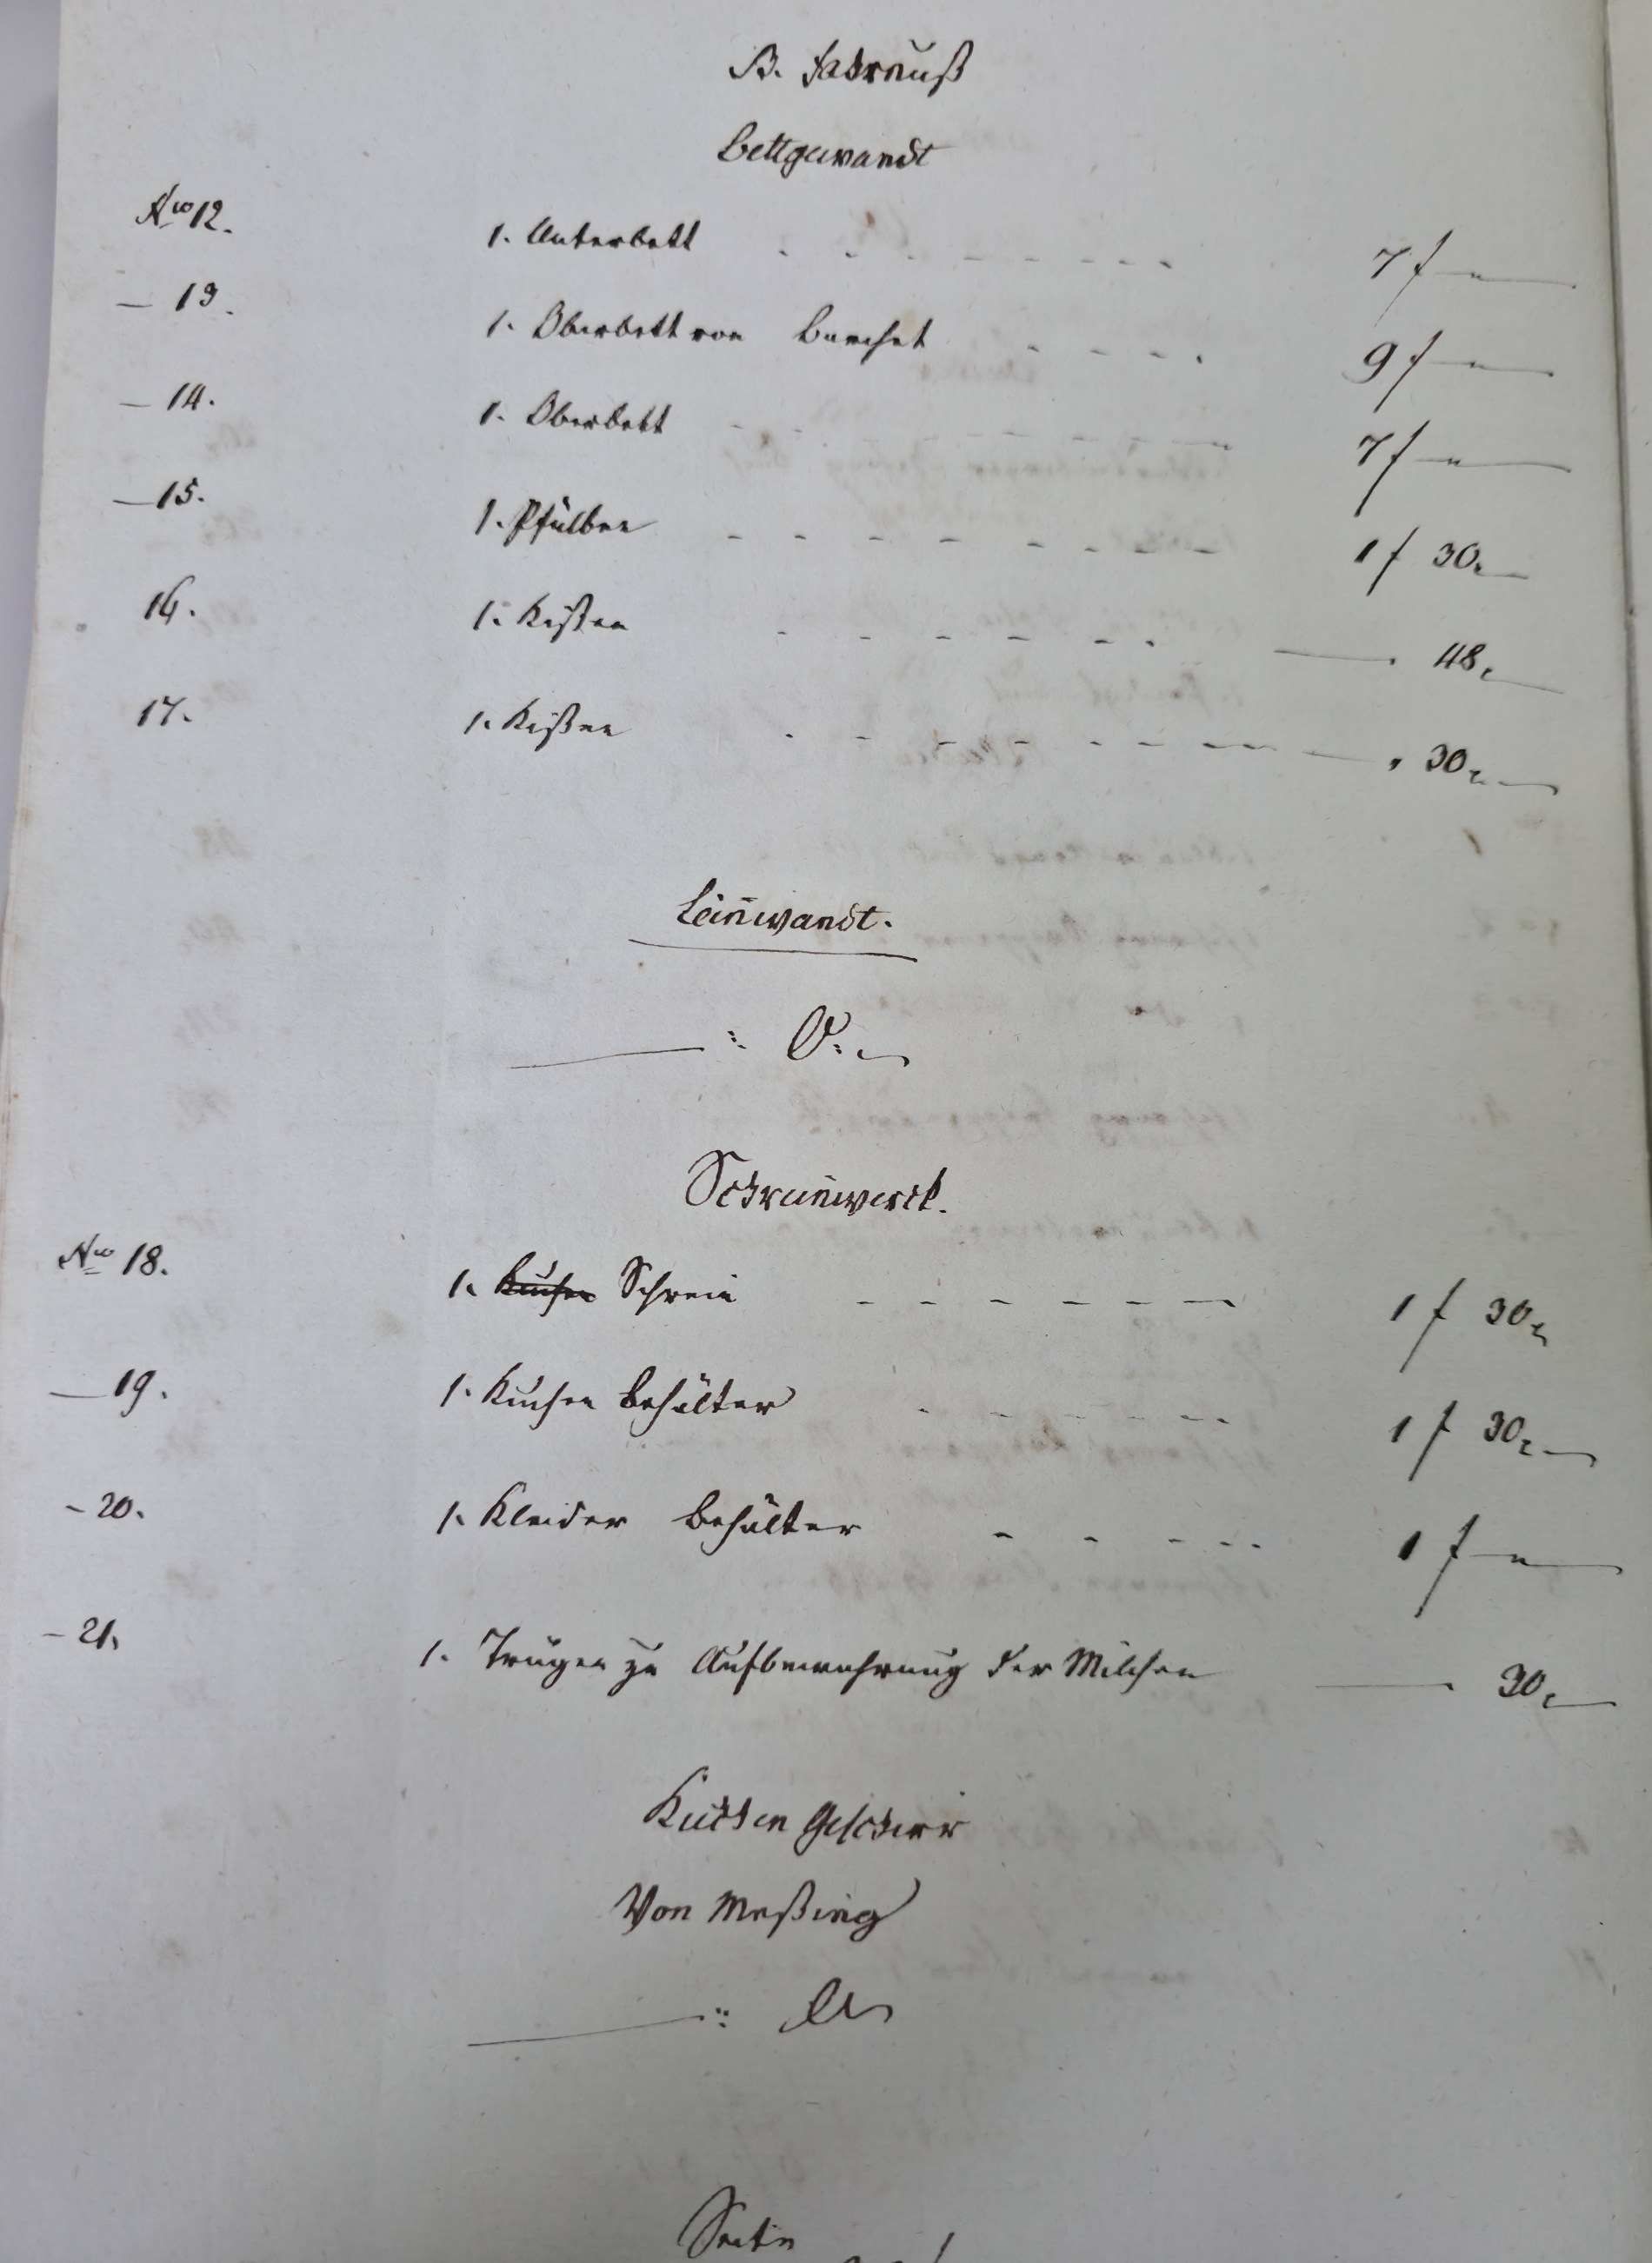 B. Fahrnuß
Bettgewandt
No 12. 1. Unterbett - - - - - - - - 7 f —
— 13. 1. Oberbett von Barchet - - - - 9 f —
— 14. 1. Oberbett - - - - - - - - 7 f —
— 15. 1. Pfülben - - - - - - - - 1 f 30.
16. 1. Kißen - - - - - - — . 48.
17. 1. Kißen - - - - - - - - — . 30.
Leinwandt.
—— :: 0. :
Schreinwerck.
No 18. 1. Kuchen Schrein - - - - - - 1 f 30.
— 19. 1. Kuchen Behälter - - - - - - 1 f 30.
— 20. 1. Kleider Behälter - - - - - 1 f —
— 21. 1. Trügen zu Aufbewahrung der Milchen — 30.
Kuchen Geschirr
Von Meßing
—— ::
Seite